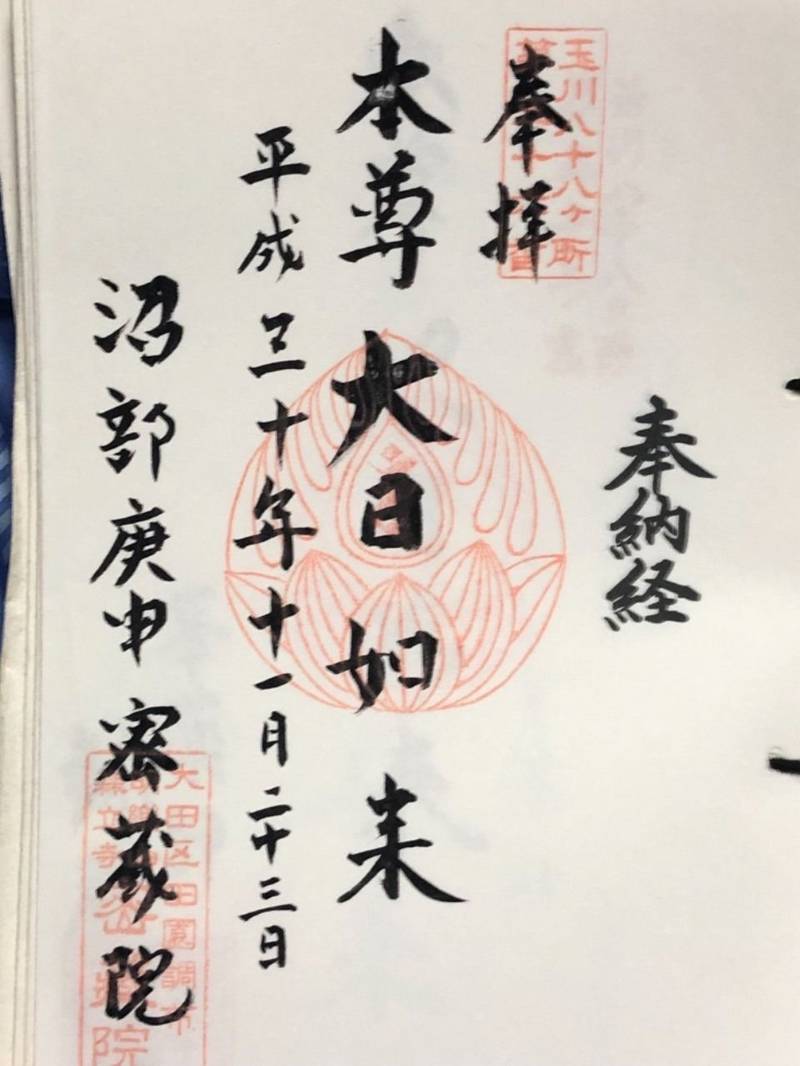 奉納経
玉川八十八ヶ所
奉拝
本尊 大日如来
平成三十年十一月二十三日
沼部庚申 密蔵院
大田区田園調布